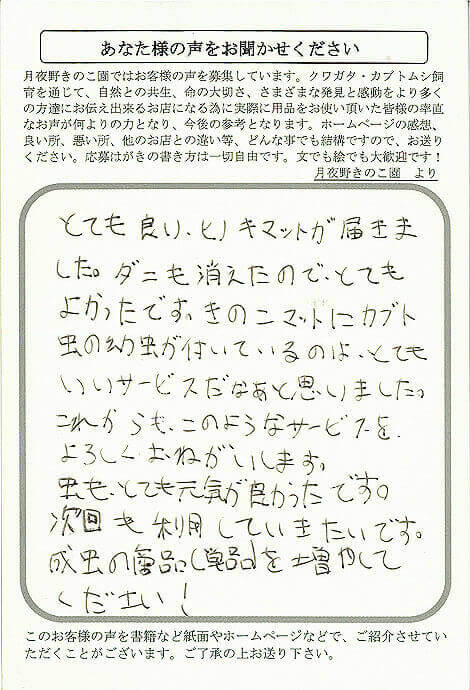 あなた様の声をお聞かせください
月夜野きのこ園ではお客様の声を募集しています。クワガタ・カブトムシ飼
育を通じて、自然との共生、命の大切さ、さまざまな発見と感動をより多く
の方達にお伝え出来るお店になる為に実際に用品をお使い頂いた皆様の率直
なお声が何よりの力となり、今後の参考となります。ホームページの感想、
良い所、悪い所、他のお店との違い等、どんな事でも結構ですので、お送り
ください。応募はがきの書き方は一切自由です。文でも絵でも大歓迎です！
月夜野きのこ園　より
とても良い、ヒノキマットが届きま
した。ダニも消えたので、とても
よかったです。きのこマットにカブト
虫の幼虫が付いているのは、とても
いいサービスだなあと思いました。
これからも、このようなサービスを、
よろしくおねがいします。
虫も、とても元気が良かったです。
次回も利用していきたいです。
成虫の商品(単品)を増やして
ください！
このお客様の声を書籍など紙面やホームページなどで、ご紹介させてい
ただくことがございます。ご了承の上お送り下さい。